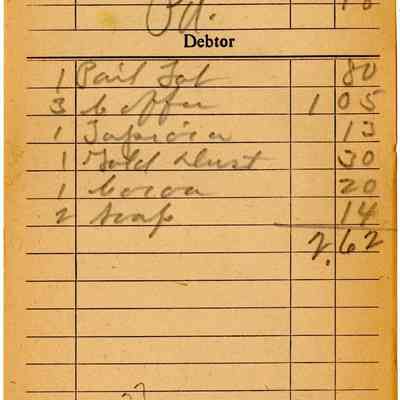 Pd.
Debtor
1 Pail Fat 80
3 Coffee 1 05
1 Tapioca 13
1 Gold Dust 30
1 Cocoa 20
2 Soap 14
2.62